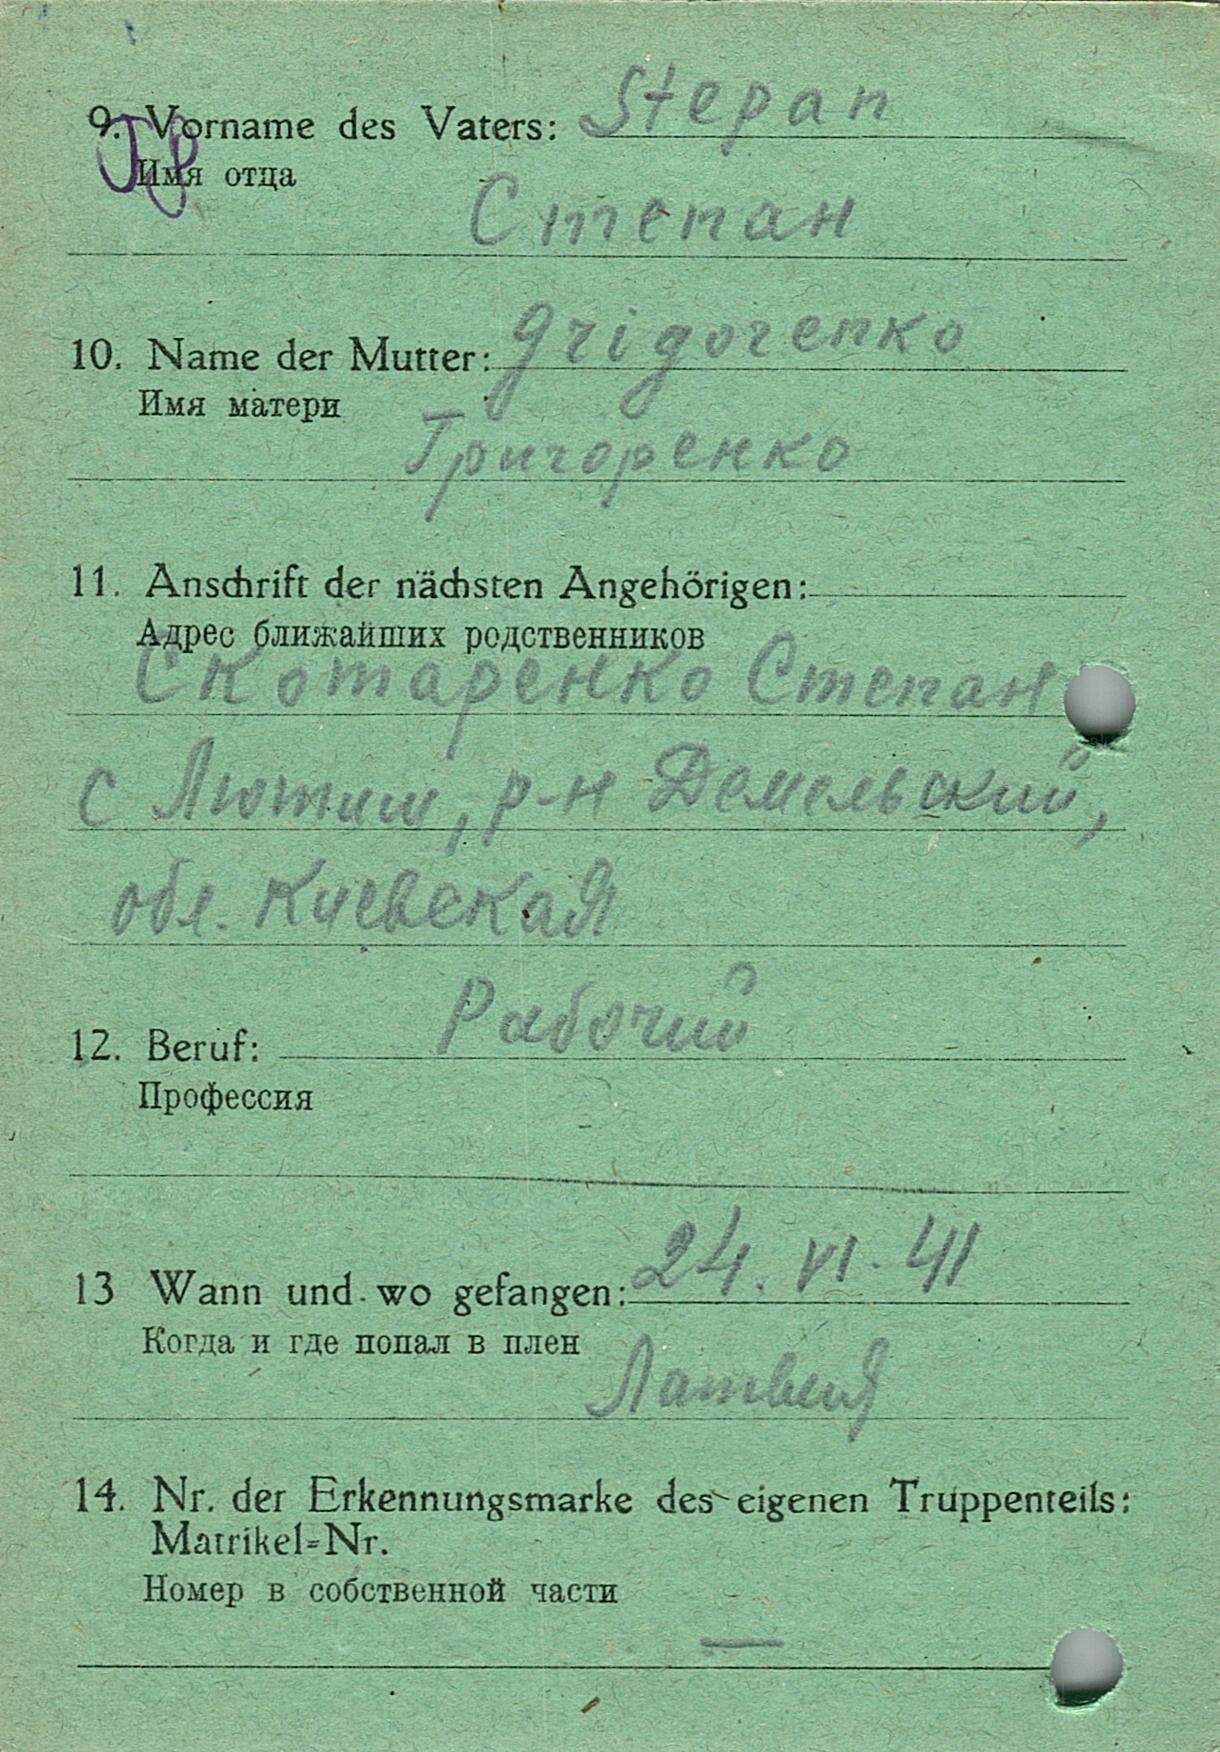 9. Vorname des Vaters: Stepan
Имя отца
Степан
10. Name der Mutter: Grigorenko
Имя матери
Григоренко
11. Anschrift der nächsten Angehörigen:
Адрес ближайших родственников
Скотаренко Степан
с Лютиш, р-н Демельский,
обл. Киевская
12. Beruf: Рабочий
Профессия
13 Wann und wo gefangen: 24. VI. 41
Когда и где попал в плен
Латвия
14. Nr. der Erkennungsmarke des eigenen Truppenteils:
Matrikel=Nr.
Номер в собственной части
—